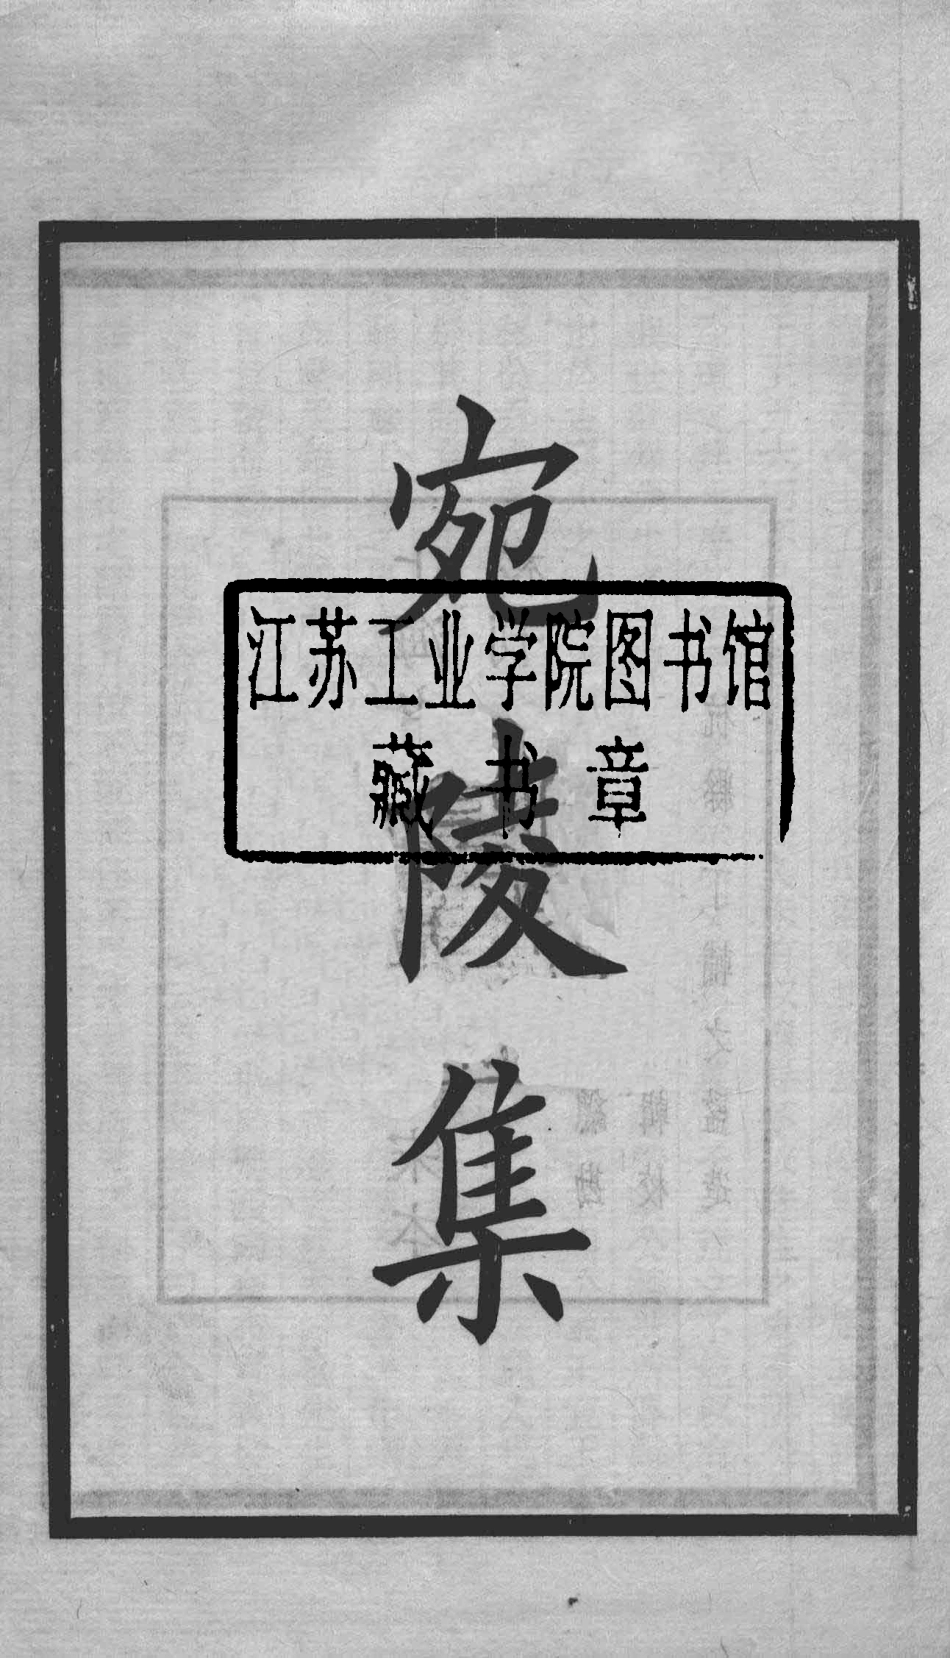 宛陵集
江苏工业学院图书馆
藏书章